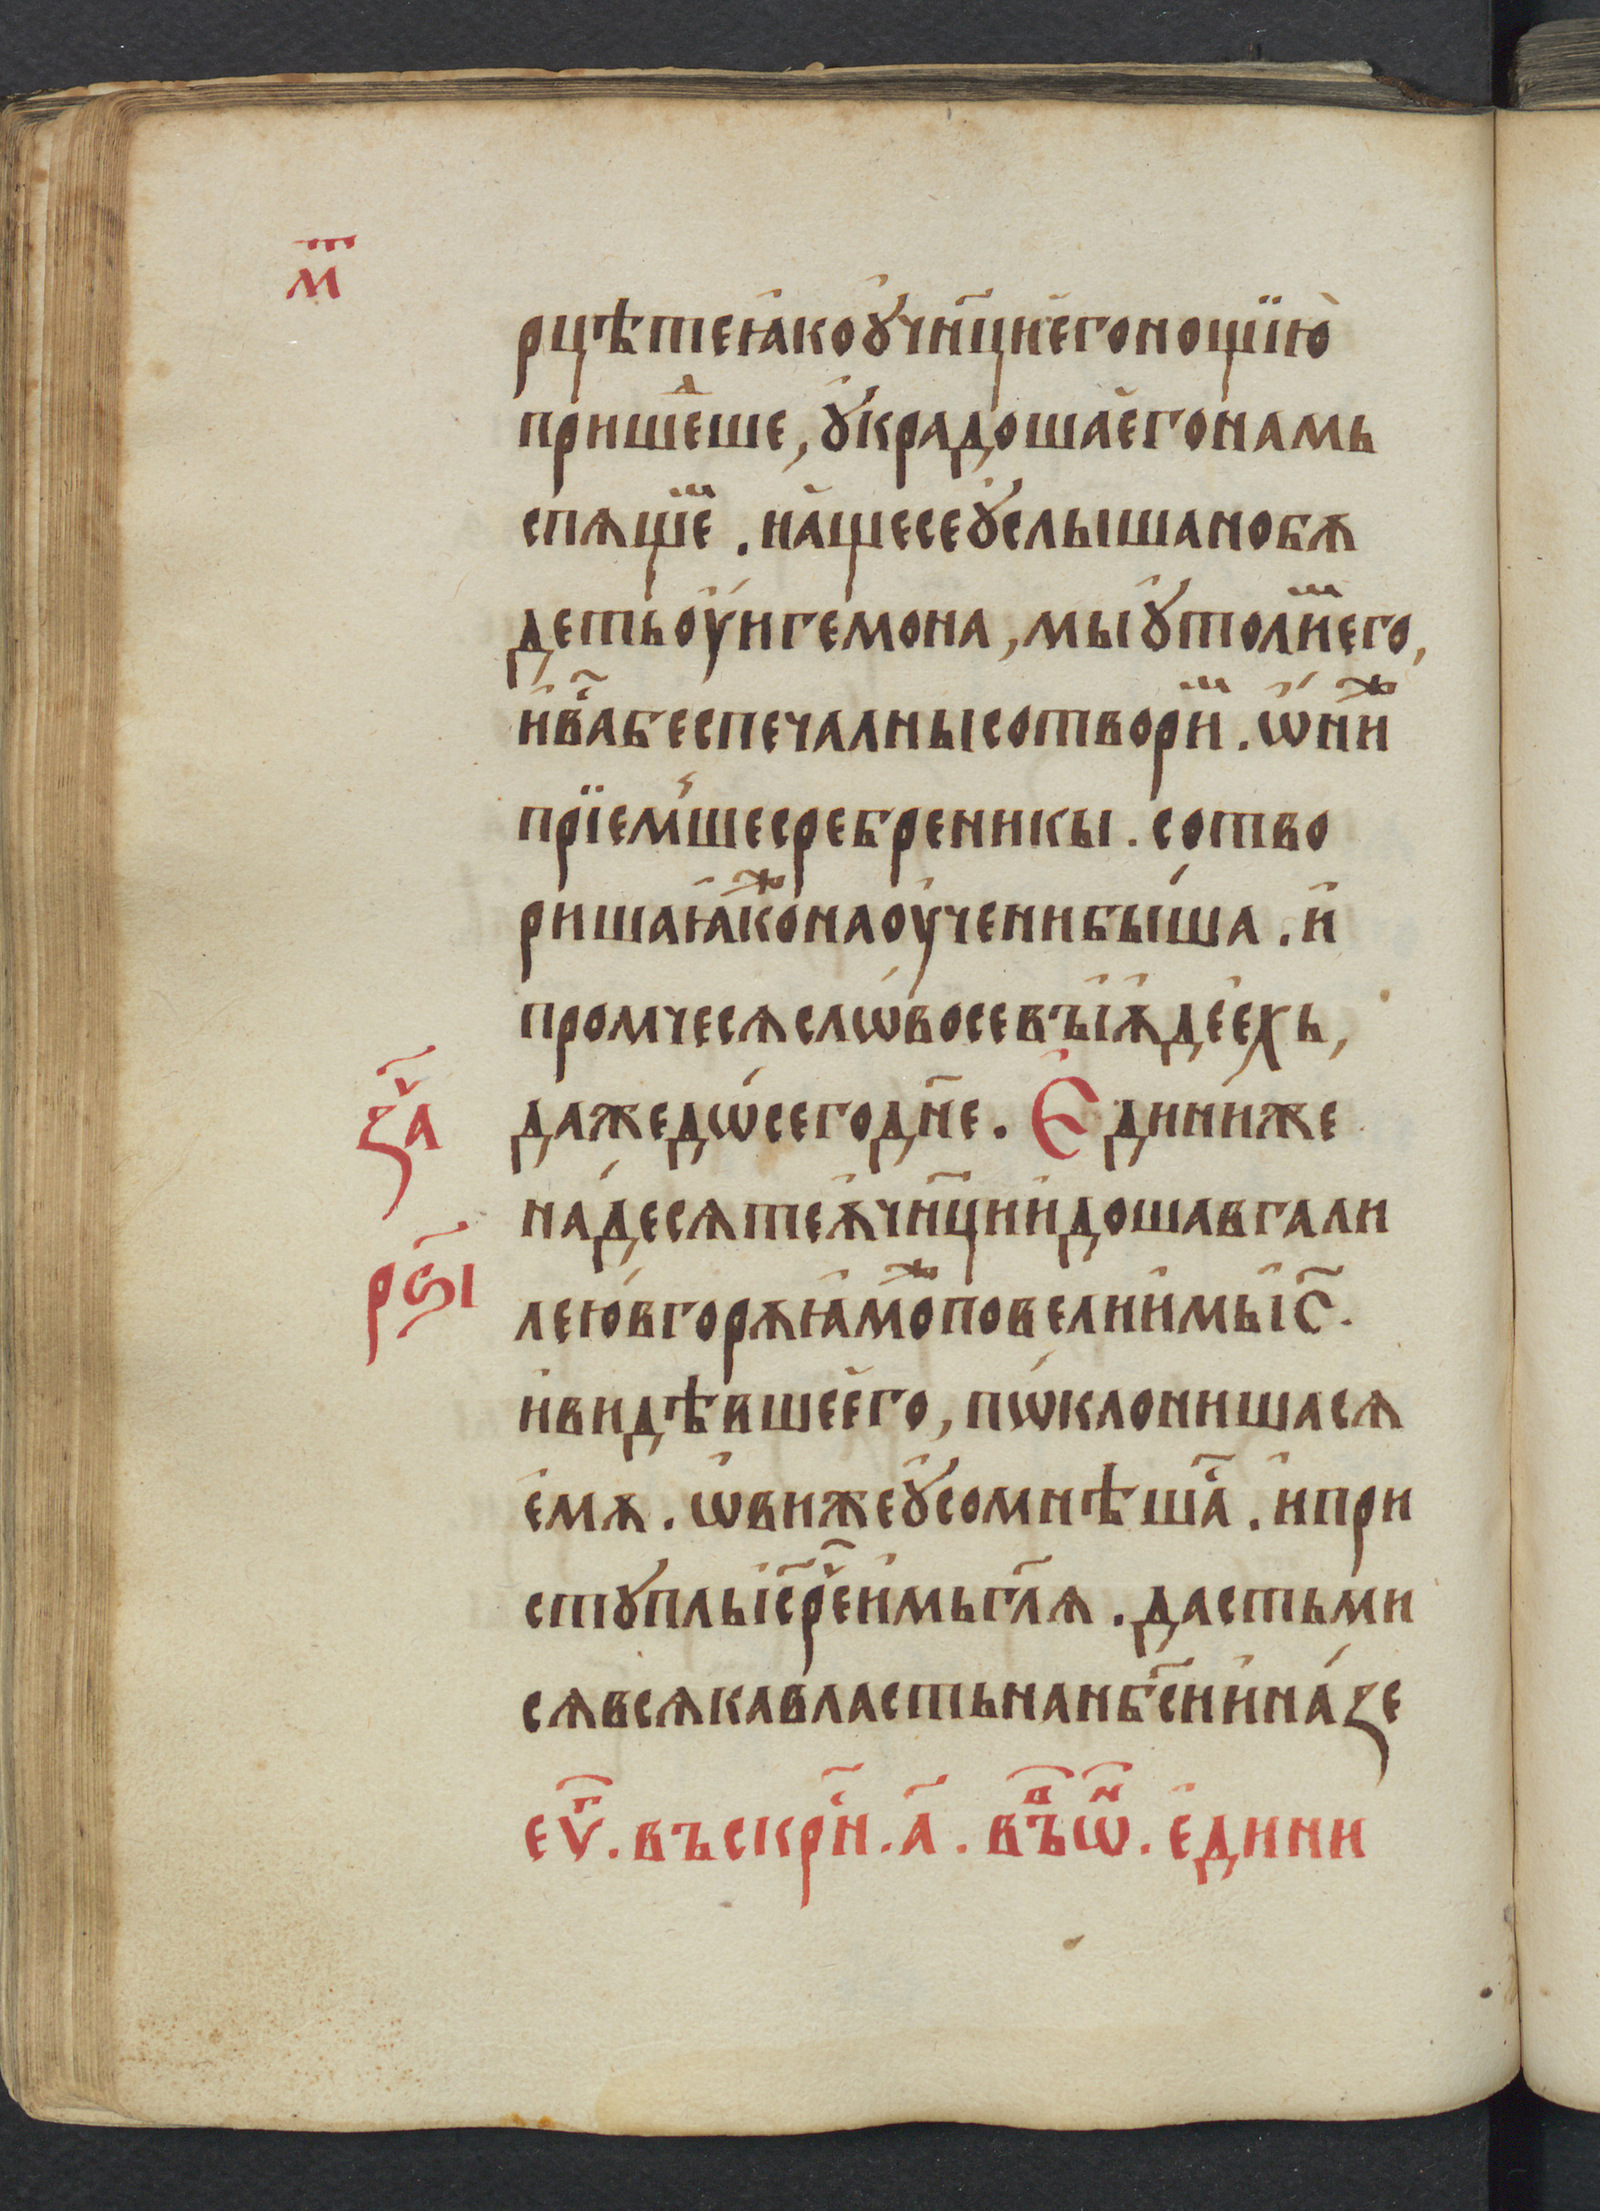 мⷮ
рцѣтеꙗ҆коꙋ҆чн҃цие҆гонощїю̀
прише́ⷣше, ꙋ҆крадошае҆гонамь
спѧще́ⷨ. и҆а҆щесеꙋ҆слышанобѫ
детьоу҆игемона, мыꙋ҆толи́ⷨего,
и҆ва́ⷭ҇беспечалнысотвори́ⷨ. ѡ҆ни́ⷤ
прїе́мшесребреникы. сотво
ришаꙗ҆ко́ⷤнаоу҆чениби́ша. и҆
промчесѧслѡ́восевъі҆ѫ҆де́е҆хь,
дажедѡ́сегодн҃е. Е҆динииже
за҃ⷱ
на́десѧтеѫ҆чн҃цииндошавгали
рѕ҃і
лею҆вгорѫꙗ҆мо́ⷤповелиимьі҆с҃.
и҆видѣвшее҆го, пѡ́клонишасѧ
е҆мѫ. ѡ҆вижеꙋ҆сомнѣша́ⷭ҇. и҆при
стꙋпльі҆с҃ре́ⷱ҇и҆мьгл҃ѧ. дастьми
сѧвсѧкавластьнанб҃сии҆на́зе
еѵⷢ҇. въскрⷭ҇н. а҃. въⷡ҇ѡⷩ҇. е҆дини